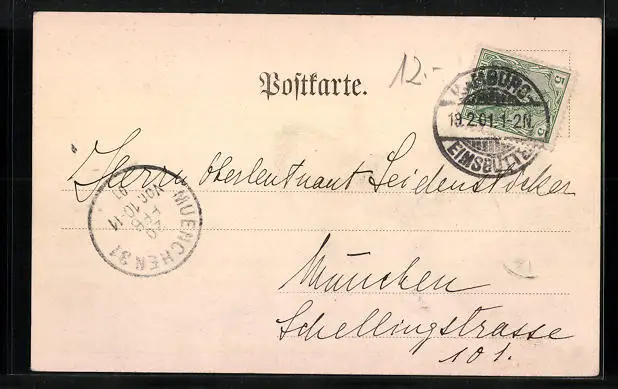 12.-
Postkarte.
5
5
HAMBURG
19.2.01.1-2N
EIMSBÜTTEL
Herrn Oberleutnant Seidenstöcker
MUENCHEN 31
20
FEB
VOR.10-11
01
München
Schellingstrasse
101.